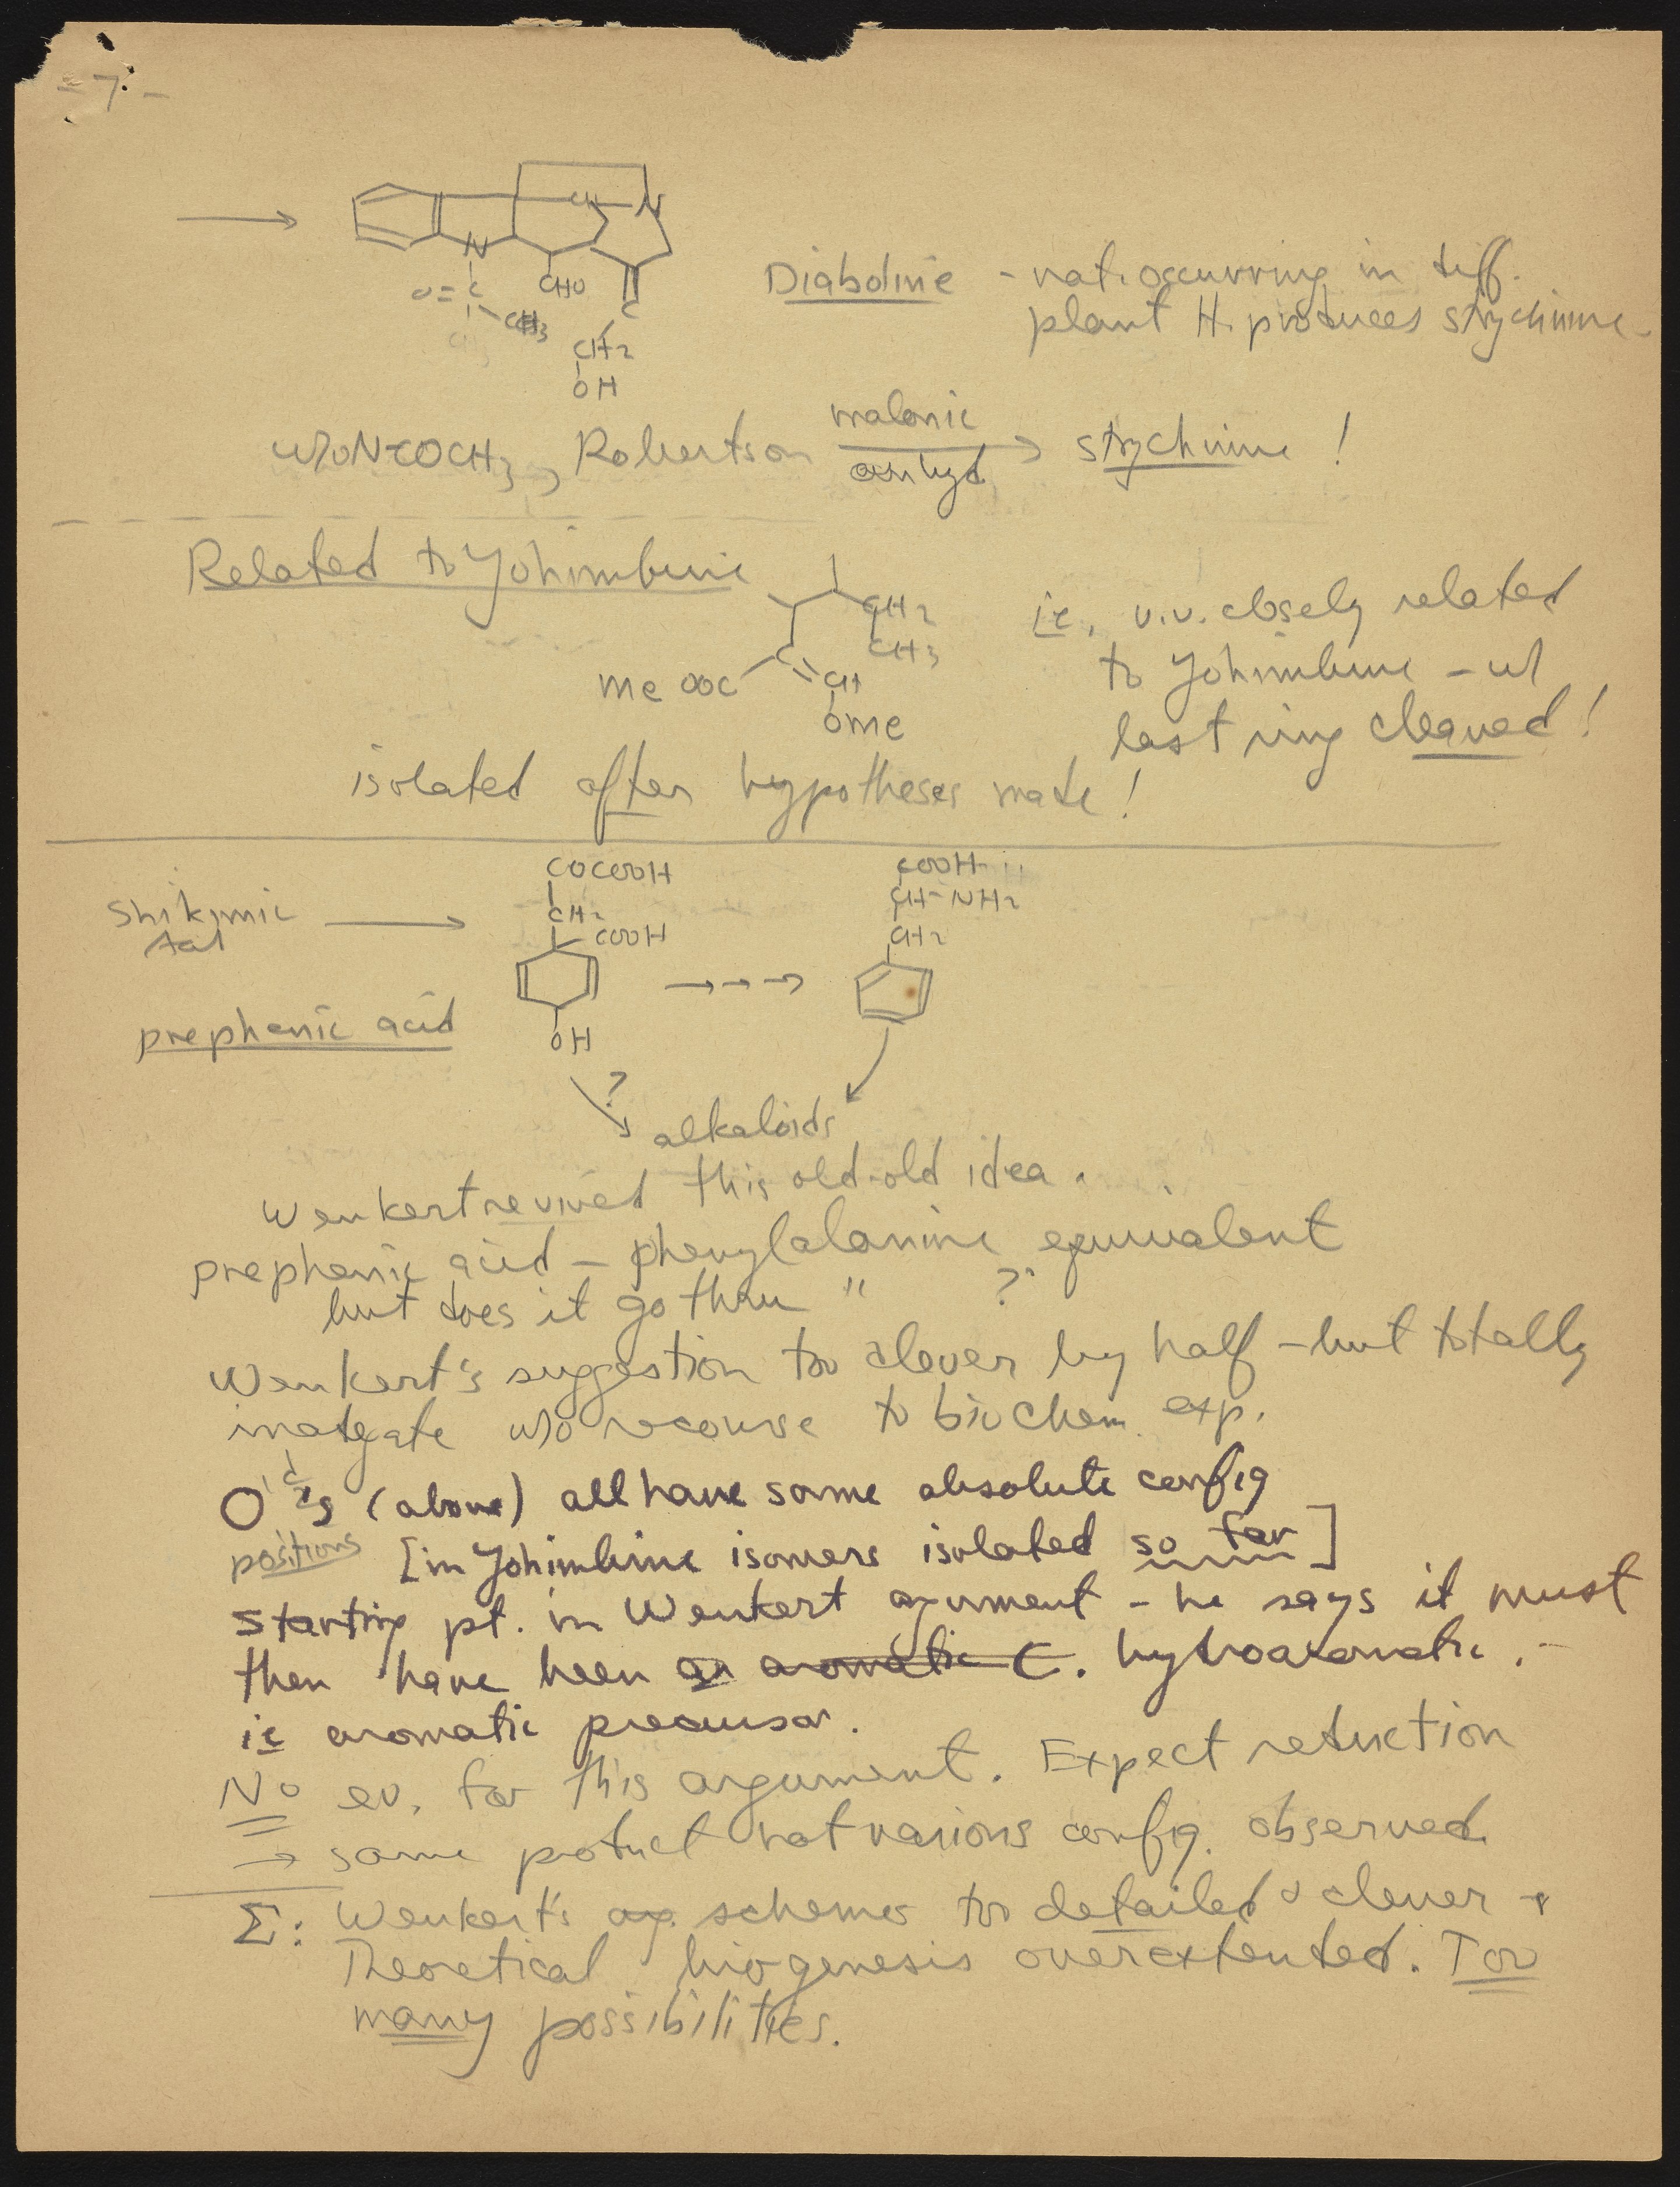 - 7 -
CH N
N
O= C CHO
CH3 C
CH2
OH
Diaboline - nat. occurring in diff.
plant H. produces strychnine
w/o N-COCH3, Robertson malonic anhyd → strychnine !
Related to Yohimbine
CH2
CH3
MeOOC C CH
OMe
ie, v.v. closely related
to Yohimbine - w/
last ring cleaved!
isolated after hypotheses made!
COCOOH COOH
CH2 CH-NH2
COOH CH2
Shikimic Acid → → → →
prephenic acid
OH
?
alkaloids
Wenkert revived this old-old idea.
prephenic acid - phenylalanine equivalent
but does it go thru " ?
Wenkert's suggestion too clever by half - but totally
w/o recourse to biochem. exp.
O'd C's (above) all have same absolute config
positions [in Yohimbine isomers isolated so far]
Starting pt. in Wenkert argument - he says it must
then have been an aromatic C. hydroaromatic.
ie aromatic precursor.
No ev. for this argument. Expect reduction
→ same product not various config. observed.
Σ: Wenkert's schemes too detailed & clever &
Theoretical biogenesis overextended. Too
many possibilities.